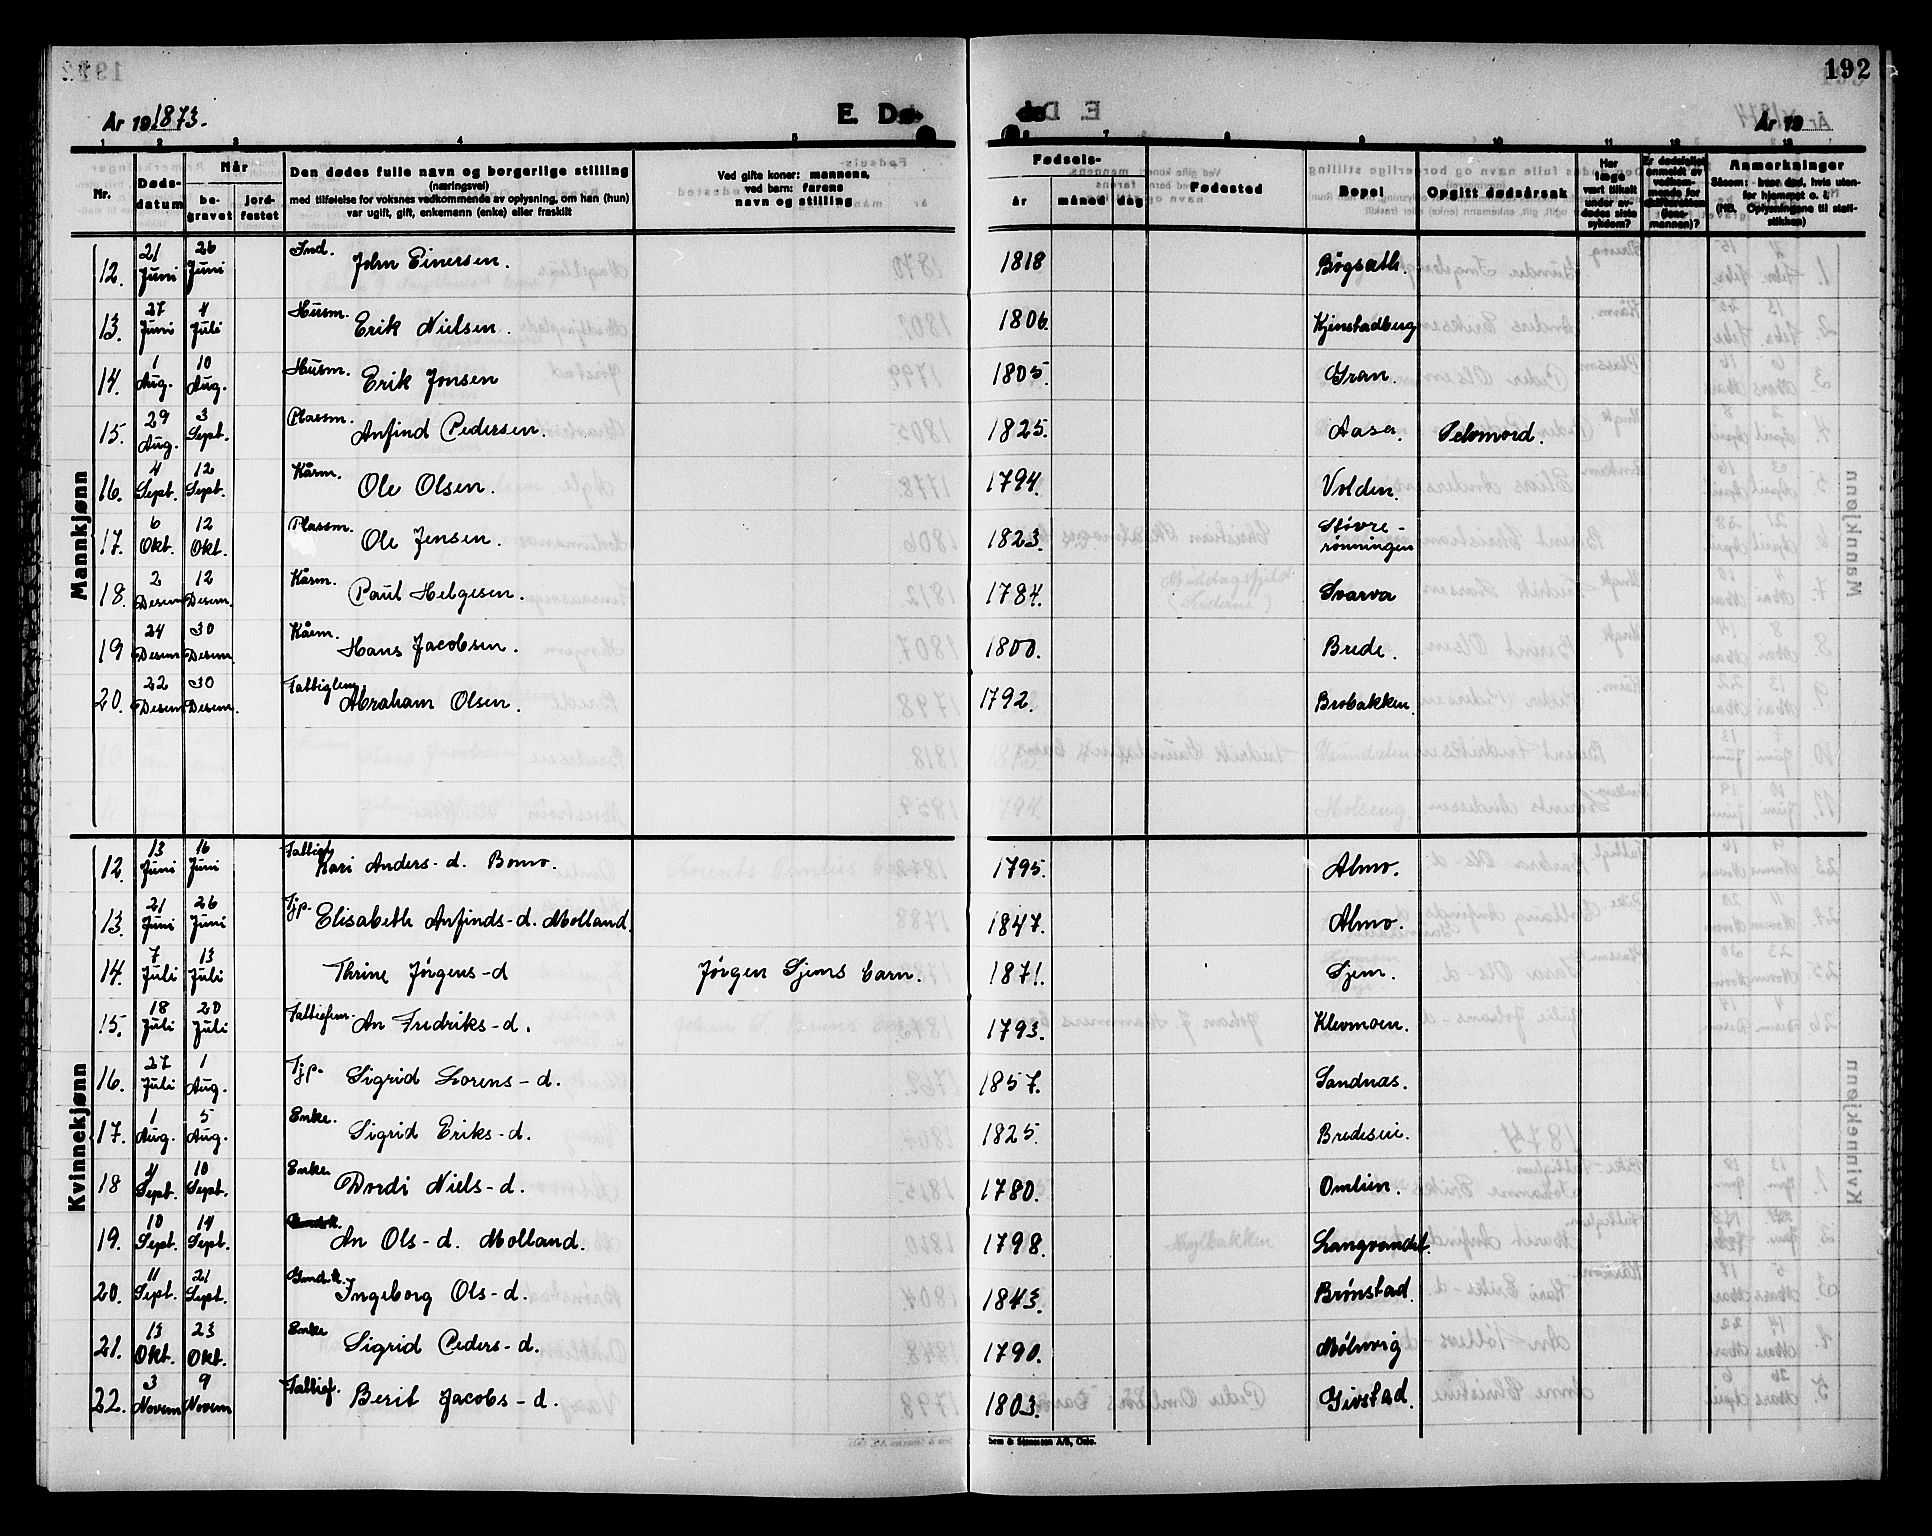 192
År 19 1873.
E. Dø-
de
År 19
1 2 3 4 5 6 7 8 9 10 11 12 13
Nr.
Døds-
datum
Når
be-
gravet
jord-
festet
Den dødes fulle navn og borgerlige stilling
(næringsvei)
med tilføielse for voksnes vedkommende av oplysning, om han (hun)
var ugift, gift, enkemann (enke) eller fraskilt
Ved gifte koner: mannens,
ved barn: farens
navn og stilling
Fødsels-
år måned dag
Fødested
Bopel
Opgitt dødsårsak
Har
læge
vært tilkalt
under av-
dødes siste
sykdom?
Er dødsfallet
anmeldt av
vedkom-
mende for
skifteretten
(lens-
mannen)?
Anmerkninger
Såsom: hvor død, hvis uten-
for hjemmet o. l.
(NB. Oplysningene til stati-
stikken)
Mannkjønn
12. 21 Juni 26 Juni Ind. John Einersen. 1818 Bögsæth.
13. 27 Juni 4 Juli Husm. Erik Nielsen. 1806. Kjinstadberg
14. 1 Aug. 10 Aug. Husm. Erik Jonsen 1805. Gran.
15. 29 Aug. 3 Sept. Plassm. Anfind Pedersen. 1825. Aasen. Selvmord.
16. 4 Sept. 12 Sept. Kårm. Ole Olsen. 1794. Volden.
17. 6 Okt. 12 Okt. Plassm. Ole Jensen. 1823. Støvre-
rønningen
18. 2 Desem 12 Desem. Kårm. Paul Helgesen. 1784. Svarva
19 24 Desem 30 Desem. Kårm. Hans Jacobsen. 1800. Brede.
20. 22 Desem 30 Desem. Fattiglem Abraham Olsen. 1792. Brobakken.
Kvinnekjønn
12. 13 Juni 16 Juni Fattigl. Kari Anders-d. Bomo. 1795. Almo.
13. 21 Juni 26 Juni Tjp. Elisabeth Anfinds-d. Molland. 1847. Almo.
14. 7 Juli 13 Juli Thrine Jørgens-d Jørgen Sjems barn. 1871. Sjem.
15. 18 Juli 20 Juli An Fredriks-d. 1793. Klevmoen.
16. 27 Juli 1 Aug. Tjp. Sigrid Lorens-d. 1857. Sandnas.
17. 1 Aug. 5 Aug. Enke. Sigrid Eriks-d. 1825. Bredesen.
18 4 Sept. 10 Sept. Enke. Dordi Niels-d. 1780. Omlien.
19. 10 Sept. 14 Sept. An Ols-d. Molland. 1798. Langvandet.
20. 11 Sept. 21 Sept. Ingeborg Ols-d. 1843. Brønstad.
21. 13 Okt. 23 Okt. Enke Sigrid Peders-d. 1790. Mölnvig
22. 3 Novem 9 Novem Fattigl. Berit Jacobs-d. 1803. Givstad.
Sem & Stenersen A/S, Oslo.